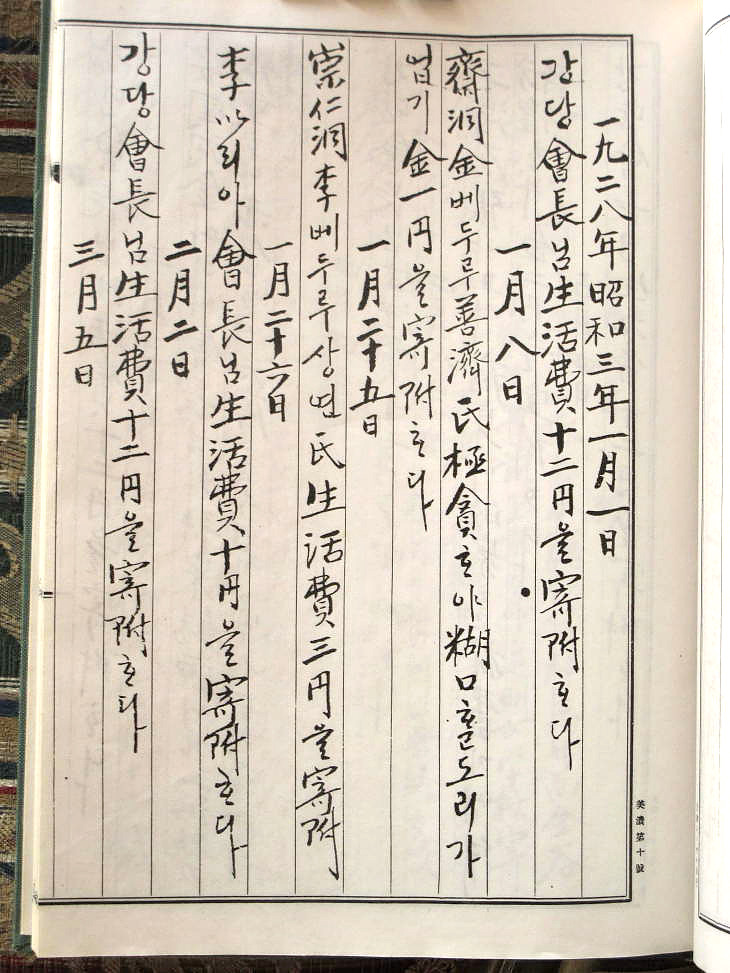 一九二八年昭和三年一月一日
강당會長님生活費十二円을寄附ᄒᆞ다
一月八日
齋洞金베두루善濟氏極貧ᄒᆞ야糊口ᄒᆞᆯ도리가
업기金一円을寄附ᄒᆞ다
一月二十五日
崇仁洞李베두루상면氏生活費三円을寄附
一月二十六日
李마리아會長님生活費十円을寄附ᄒᆞ다
二月二日
강당會長님生活費十二円을寄附ᄒᆞ다
三月五日
美濃第十號